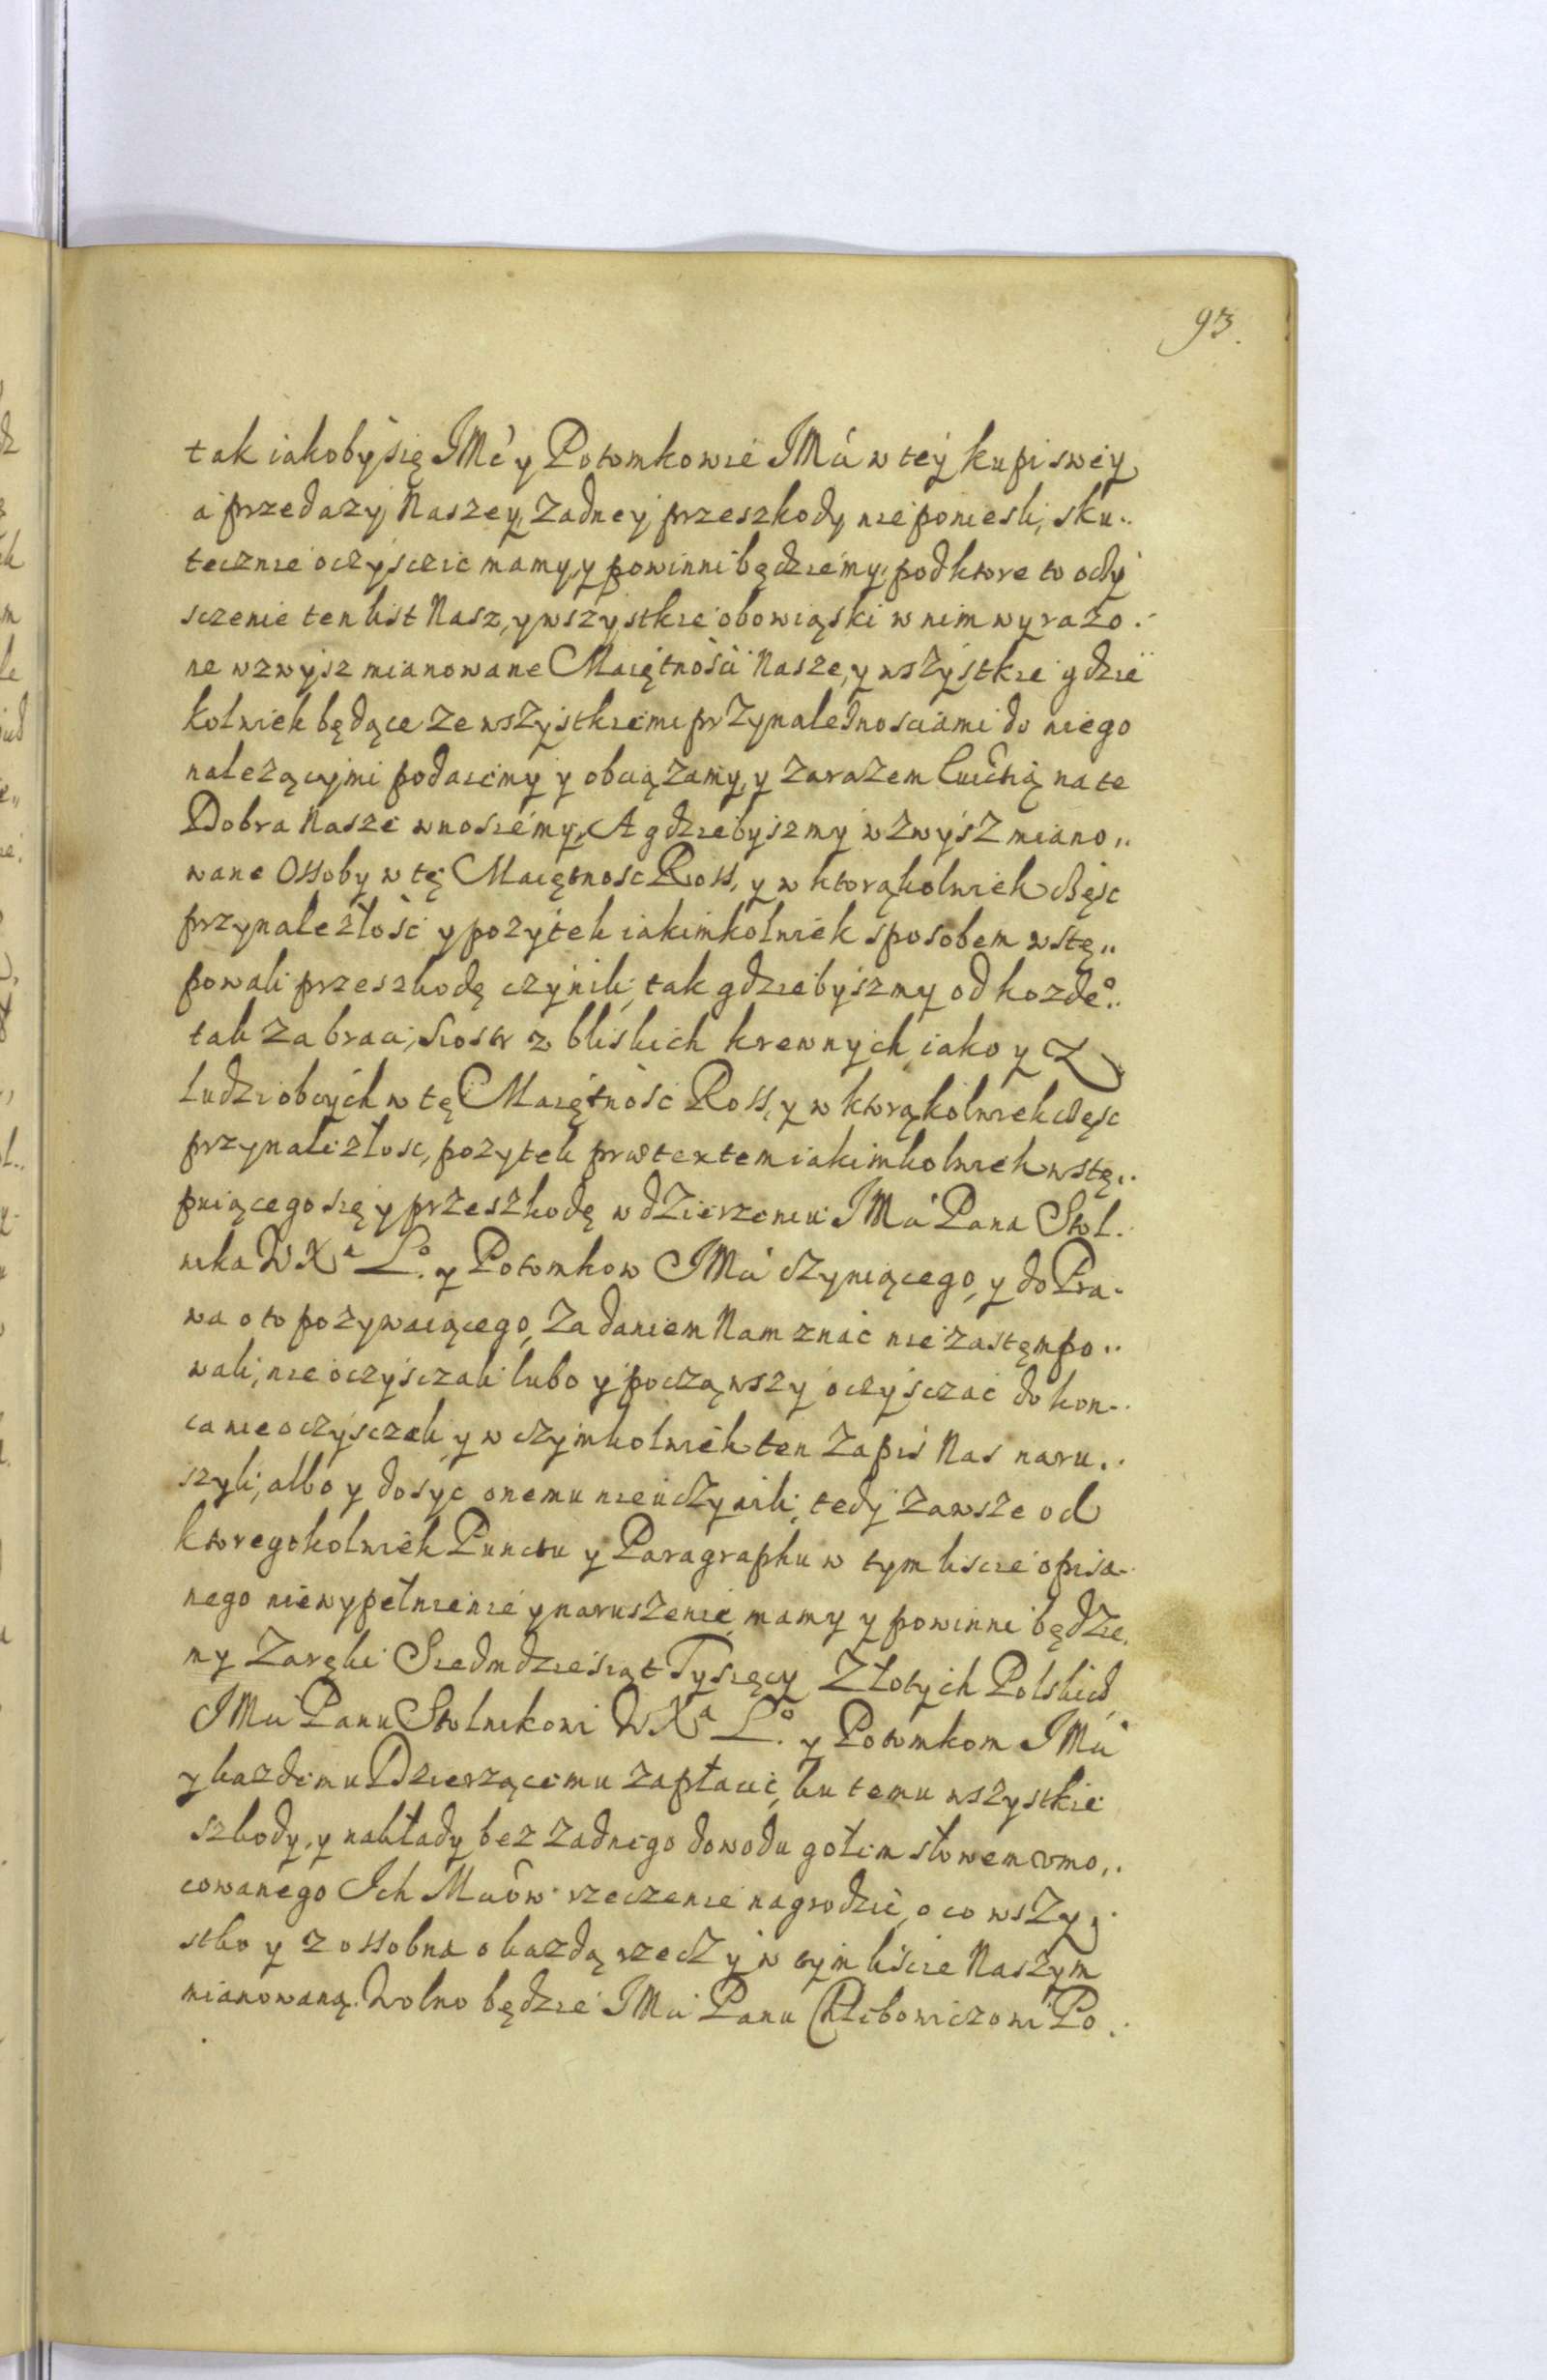 93.
tak iakoby się JMć y Potomkowie JMći w tey kupi swey
a przedazy Naszey, Zadney przeszkody nie ponieśli, sku„
tecznie oczyscic mamy, y powinni będziemy, pod ktore to oczy
sczenie ten list Nasz, y wszystkie obowiąski w nim wyrazo„
ne wzwysz mianowane Maiętności Nasze, y wszystkie gdzie
kolwiek będące ze wszystkiemi przynaleznosciami do niego
nalezącymi podaiemy y obciązamy, y zarazem Euictią na te
Dobra Nasze wnosiemy, A gdziebyszmy wzwysz miano„
wane Ossoby w tę Maiętnosc Ross, y w ktorąkolwiek częsc
przynalezłość y pozytek iakimkolwiek sposobem wstę„
powali przeszkodę czynili, tak gdziebyszmy od kozdeo..
tak za braci, siostr z bliskich krewnych, iako y z
ludzi obcych w tę Maiętność Ross, y w ktorąkolwiek częsc
przynalezłosc, pozytek prætextem iakimkolwiek wstę„
puiącego się y przeszkodę w dzierzeniu JMći Pana Stol.
nika WXa Lo. y Potomkow JMći czyniącego, y do Pra„
wa o to pozywaiącego, Za daniem Nam znać nie zastęmpo„
wali, nie oczysczali lubo y począwszy oczysczac do kon„
ca nie oczysczali y w czymkolwiek ten Zapis Nas naru„
szyli, albo y dosyc onemu nie uczynili, tedy zawsze od
ktoregokolwiek Punctu y Paragraphu w tym liscie opisa„
nego niewypełnienie y naruszenie, mamy y powinni będzie„
my Zaręki Siedmdziesiąt Tysięcy Złotych Polskich
JMći Panu Stolnikowi WXa Lo. y Potomkom JMći
y kazdemu Dzierzącemu zapłacić, ku temu wszystkie
szkody, y nakłady bez zadnego dowodu gołem słowem vmo„
cowanego Ich Mciów rzeczenie nagrodzić, o co wszy„
stko y z ossobna o kazdą rzecz y w tym liscie Naszym
mianowaną. Wolno będzie JMći Panu Chlebowiczowi Po„